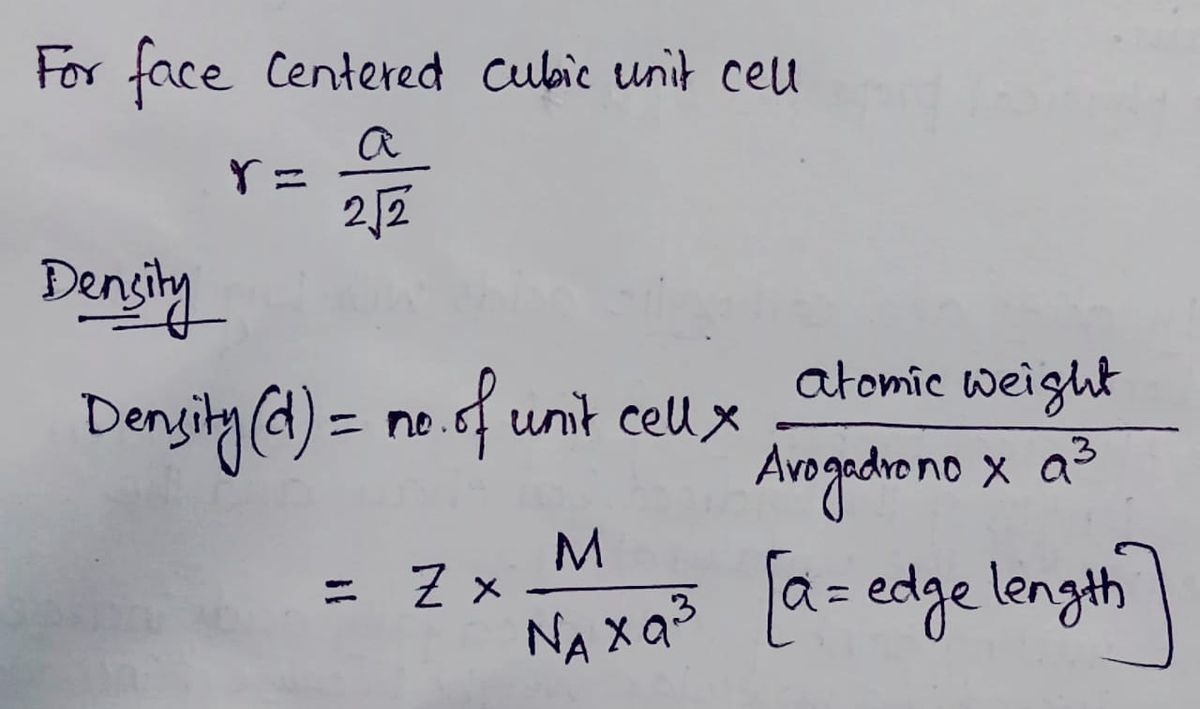 For face Centered cubic unit cell
r = a / 2√2
Density
Density (d) = no. of unit cell × atomic weight / Avogadro no × a³
= Z × M / N_A × a³ [a = edge length]